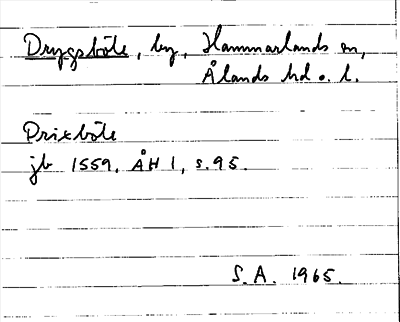 Drygsböle, by, Hammarlands sn,
Ålands hd o. l.
Prixböle
jb 1559, ÅH 1, s.95.
S.A. 1965.